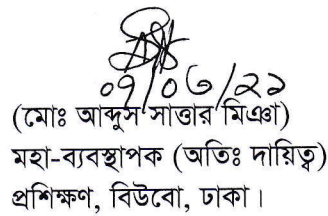 ০৭/০৬/২১
(মোঃ আব্দুস সাত্তার মিঞা)
মহা-ব্যবস্থাপক (অতিঃ দায়িত্ব)
প্রশিক্ষণ, বিউবো, ঢাকা।